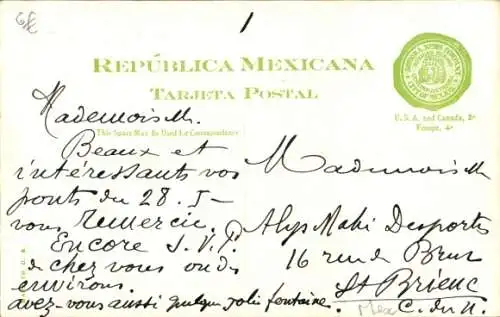 1
REPÚBLICA MEXICANA
TARJETA POSTAL
U.S.A. and Canada, 2¢
Europe, 4¢
This Space May Be Used for Correspondence
Mademoiselle.
Beaux et
intéressants vos
ponts du 28.5-
vous remercie.
Encore S.V.P.
de chez vous ou des
environs.
avez-vous aussi quelque jolie fontaine.
Mademoiselle
Alys Desportes
16 rue de Brur
St Brieuc
C. du N.
Mex